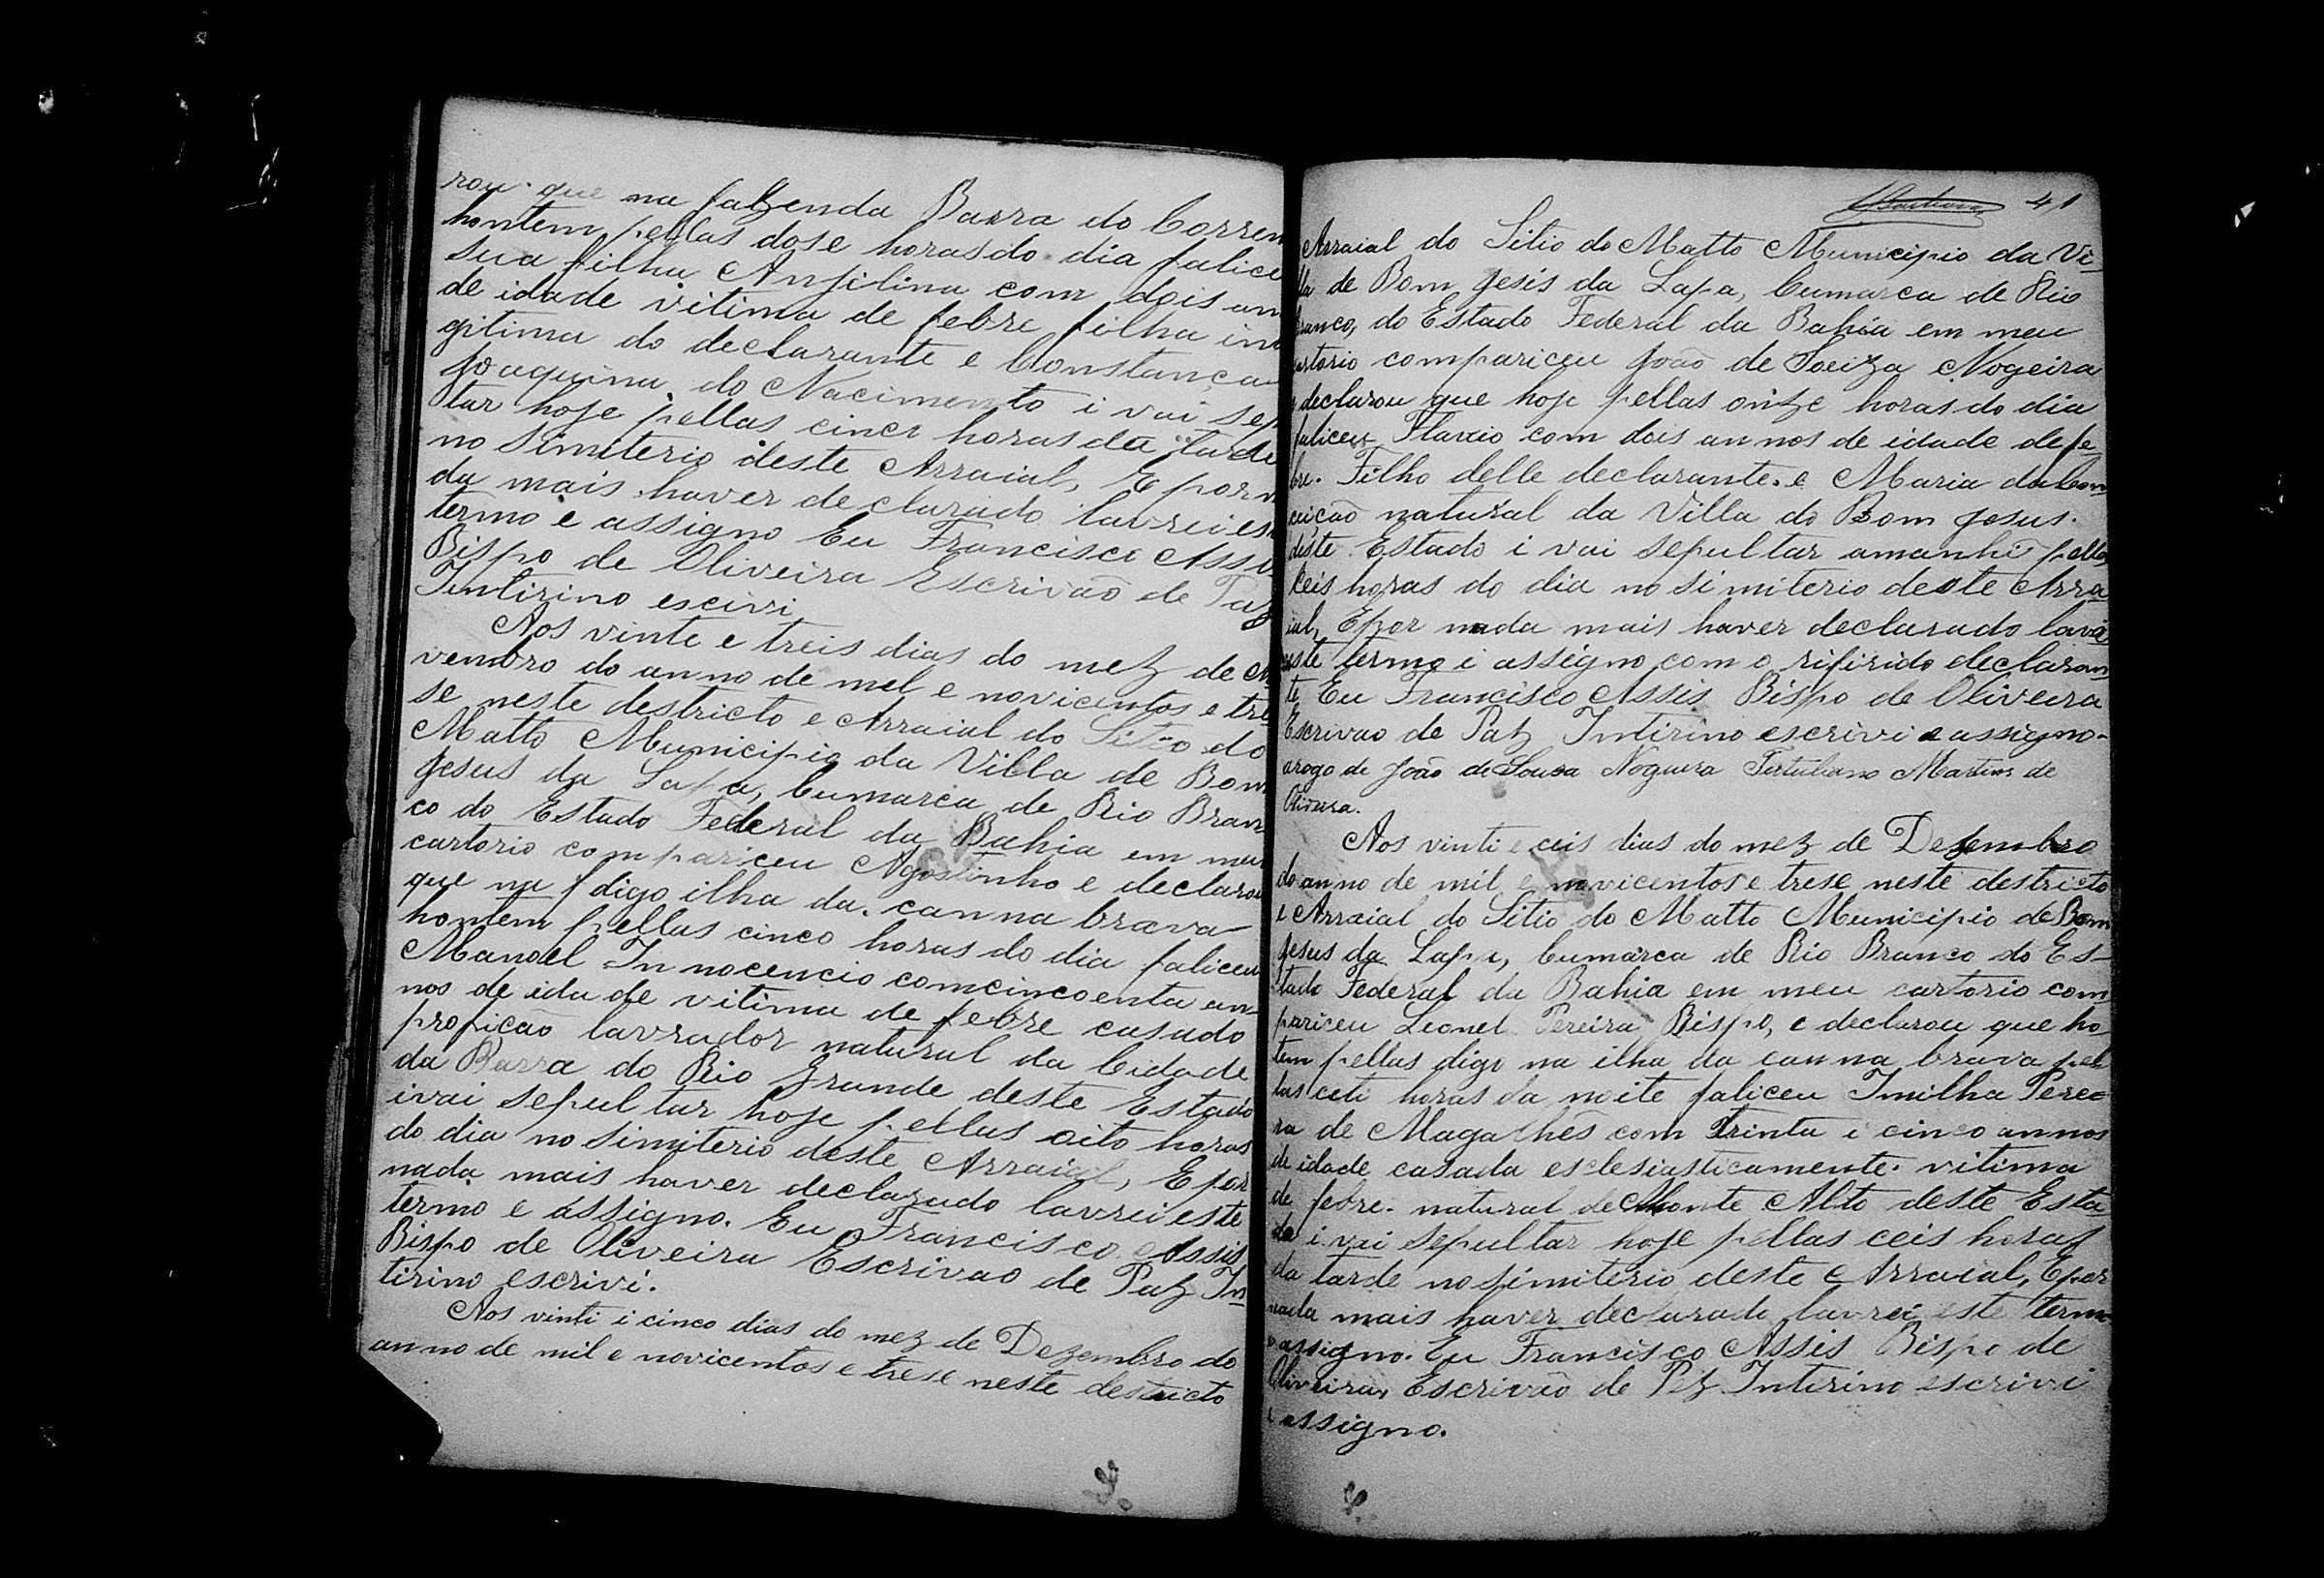 rou que na fazenda Barra do Corren
hontem pellas dose horas do dia falice
sua filha Anjilina com dois an
de idade vitima de febre filha
gitima do declarante e Constança
Joaquina do Nacimento i vai sep
tar hoje pellas cinco horas da tarde
no simiterio deste Arraial, E por n
da mais haver declarado lavrei est
termo e assigno Eu Francisco Assis
Bispo de Oliveira Escrivão de Paz
Intirino escivi
Aos vinte e treis dias do mez de
vembro do anno de mil e novicentos e tre
se neste destricto e Arraial do Sitio do
Matto Municipio da Villa de Bom
Jesus da Lapa, Cumarca de Rio Bran
co do Estado Federal da Bahia em meu
cartorio compariceu Agostinho e declarou
que na f digo ilha da canna brava
hontem pellas cinco horas do dia faliceu
Manoel Innocencio com cincoenta an
nos de idade vitima de febre casado
profição lavrador natural da Cidade
da Barra do Rio Grande deste Estado
i vai sepultar hoje pellas oito horas
do dia no simiterio deste Arraial, E por
nada mais haver declarado lavrei este
termo e assigno. Eu Francisco Assis
Bispo de Oliveira Escrivao de Paz In
tirino escrivi.
Aos vinti i cinco dias do mez de Dezembro do
anno de mil e novicentos e trese neste destricto
41
Arraial do Sitio do Matto Municipio da Vi
lla de Bom Jesis da Lapa, Cumarca de Rio
ranco, do Estado Federal da Bahia em meu
artorio compariceu João de Soeiza Nogeira
declarou que hoje pellas onze horas do dia
faliceu Flavio com dois annos de idade de fe
bre. Filho delle declarante e Maria da Con
ceição natural da Villa do Bom Jesus.
deste Estado i vai sepultar amanhã pellas
Ceis horas do dia no simiterio deste Arra
ial, E por nada mais haver declarado lavrei
este termo i assigno com o rifirido declaran
te Eu Francisco Assis Bispo de Oliveira
Escrivao de Patz Intirino escrivi e assigno.
arogo de João de Sousa Nogueira Tertuliano Martins de
Oliveira.
Aos vinti e ceis dias do mez de Dezembro
do anno de mil e novicentos e trese neste destricto
e Arraial do Sitio do Matto Municipio de Bom
Jesus da Lapa, Cumarca de Rio Branco do Es
tado Federal da Bahia em meu cartorio com
pariceu Leonel Pereira Bispo, e declarou que ho
tem pellas digo na ilha da canna brava pel
las ceti horas da noite faliceu Imilha Perei
ra de Magalhês com Trinta i cinco annos
de idade casada esclesiasticamente. vitima
de febre. natural de Monte Alto deste Esta
do i vai sepultar hoje pellas ceis horas
da tarde no simiterio deste Arraial, E por
nada mais haver declarado lavrei este termo
assigno. Eu Francisco Assis Bispo de
Oliveira, Escrivão de Paz Intirino escrivi
i assigno.